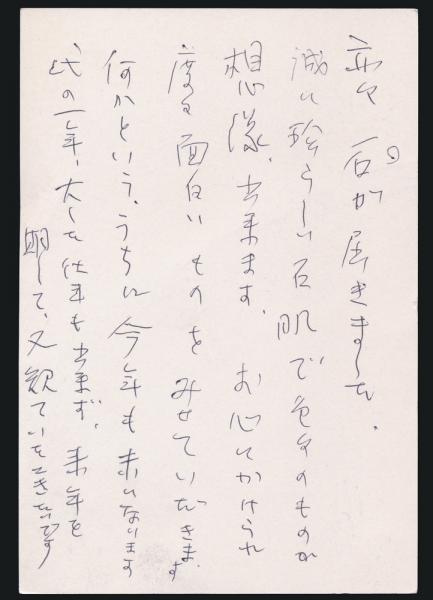 石が届きました。
誠に珍らしい石肌で色々のものが
想像出来ます。お心にかけられ
度々面白いものをみせていただきます
何かという、うちに今年も末になります
の一年、大した仕事も出来ず、来年を
期して、又観ていただきたいです